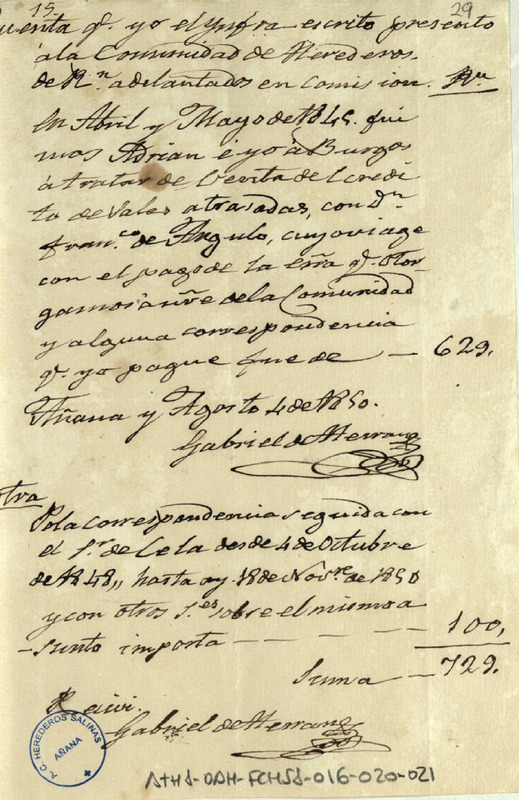 15.
29
Cuenta q.e yo el Ynfra escrito presento
á la Comunidad de Herederos
de R.n adelantados en comision. R.n
En Abril y Mayo de 1845. fui
mos Adrian é yo à Burgos
à tratar de Venta del Credi
to de Vales atrasadas, con D.n
Fran.co de Angulo, cuyo viage
con el pago de la Esña q.e otor-
gamos à ñre de la Comunidad
y alguna correspondencia
q.e yo pague fue de — 629.
Añana y Agosto 4 de 1850.
Gabriel de Herran
otra
P.r la correspondencia seguida con
el S.r de Cela desde 4 de Octubre
de 1848,, hasta oy 18 de Nov.re de 1850
y con otros S.es sobre el mismo a
-sunto importa — — — — 100,
Suma — 729.
Recivi
Gabriel de Herran
A. C. HEREDEROS SALINAS
AÑANA
ATHA-DAH-FCHSA-016-020-021